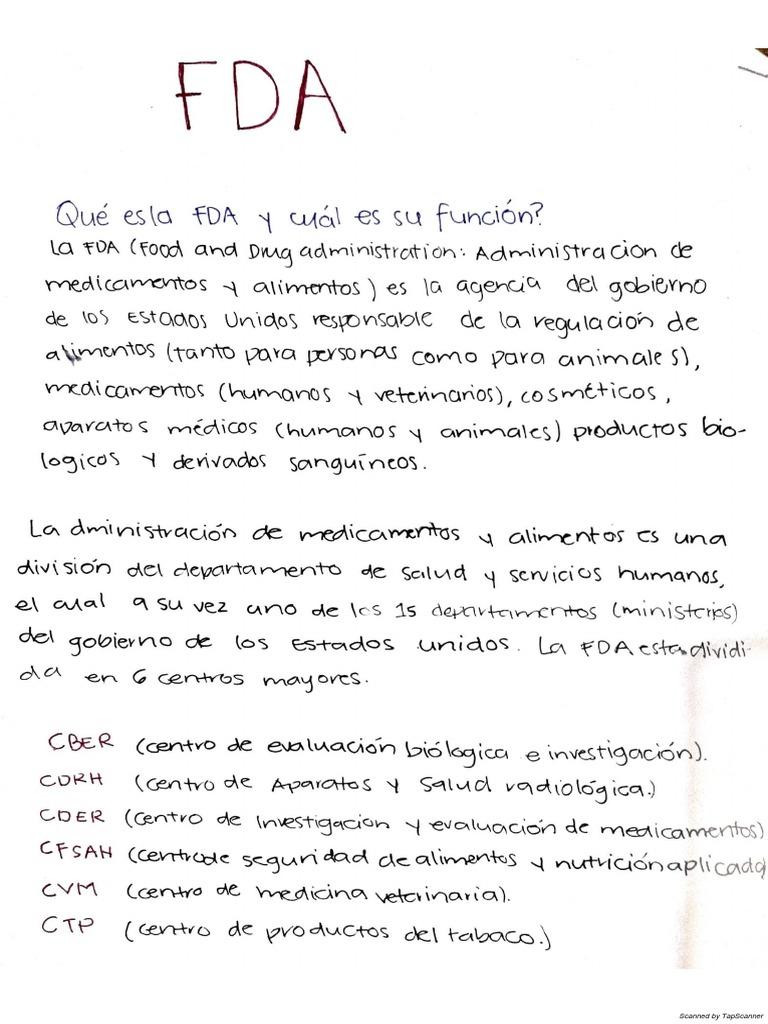 FDA
Qué es la FDA y cuál es su función?
La FDA (Food and Drug administration: Administracion de
medicamentos y alimentos) es la agencia del gobierno
de los Estados Unidos responsable de la regulación de
alimentos (tanto para personas como para animales),
medicamentos (humanos y veterinarios), cosméticos,
aparatos médicos (humanos y animales) productos bio-
logicos y derivados sanguíneos.
La dministración de medicamentos y alimentos es una
división del departamento de salud y servicios humanos,
el cual a su vez uno de los 15 departamentos (ministerios)
del gobierno de los Estados unidos. La FDA esta dividi-
da en 6 centros mayores.
CBER (centro de evaluación biólogica e investigación).
CDRH (centro de Aparatos y Salud radiológica.)
CDER (Centro de Investigacion y evaluación de medicamentos)
CFSAH (centro de seguridad de alimentos y nutrición aplicada
CVM (centro de medicina veterinaria).
CTP (centro de productos del tabaco.)
Scanned by TapScanner